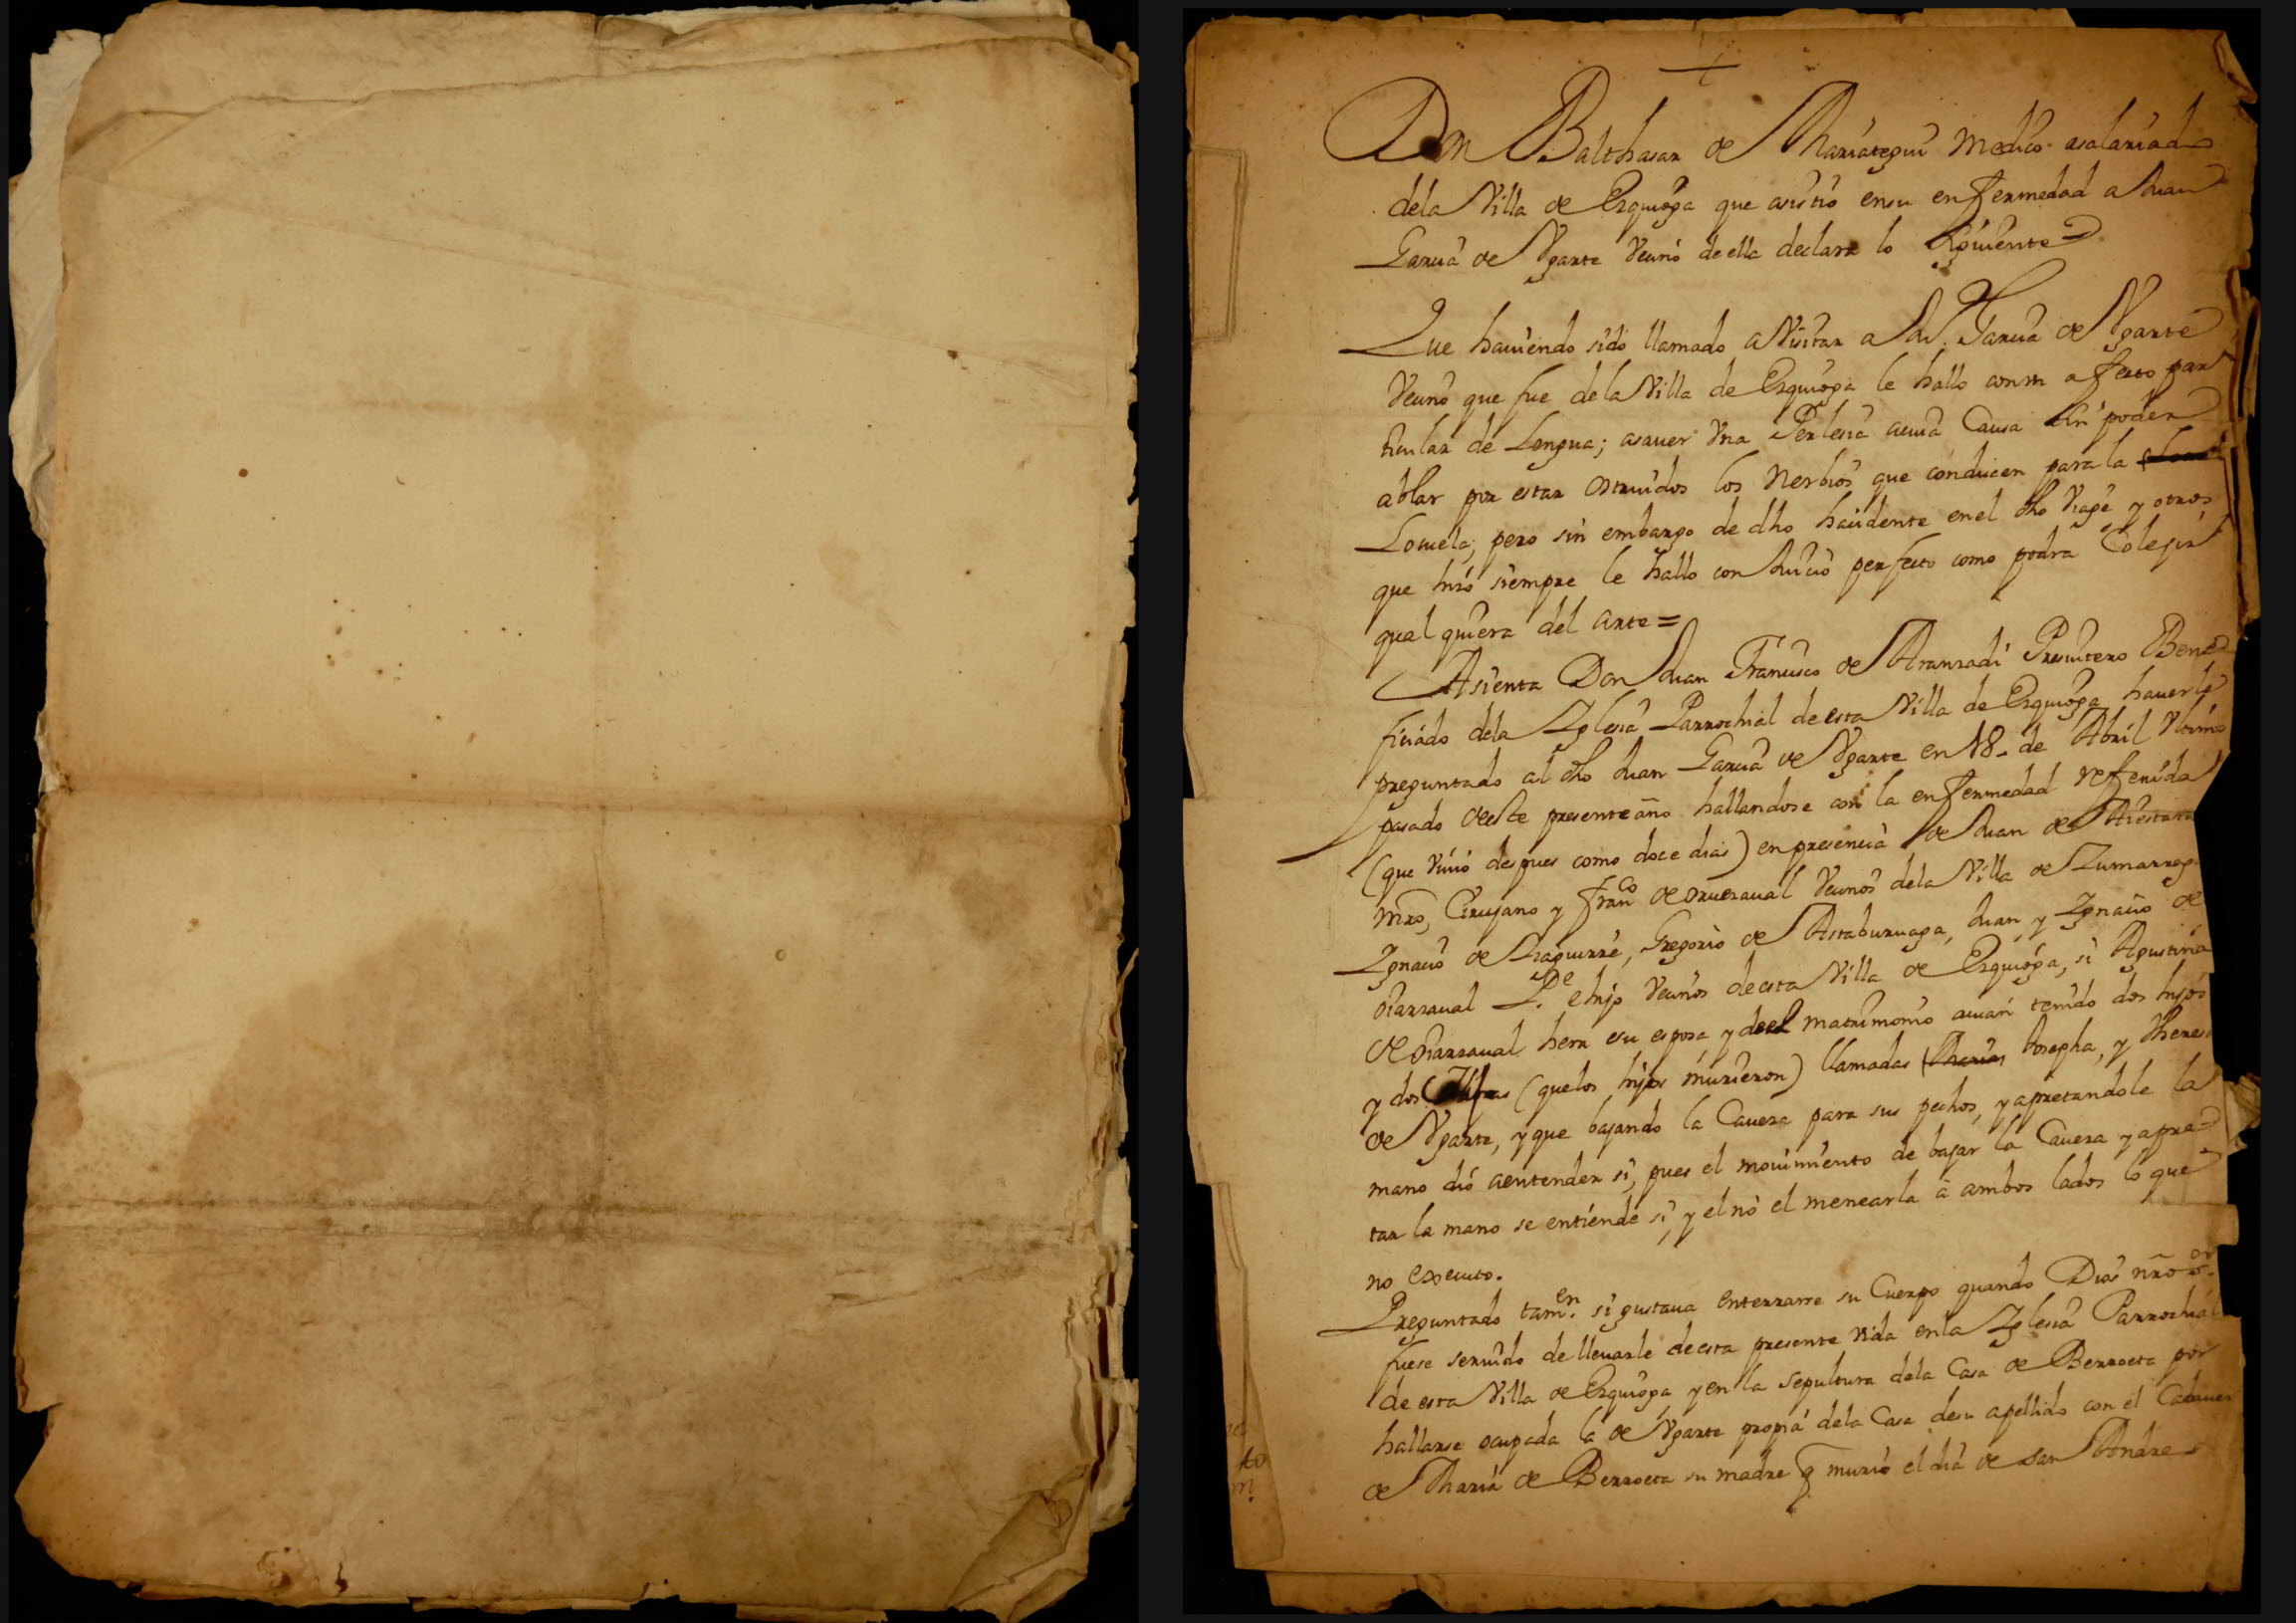 Don Balthasar de Mariategui Medico asalariado
dela Villa de Ezquioga que asistio ensu enfermedad a Juan
Garcia de Vgarte Vecino deella declara lo siguiente
Que haviendo sido llamado a Visitar a Ju. Garcia de Vgarte
Vecino que fue dela Villa de Ezquioga le hallo con vn afecto par
ticular de Lengua; asaver Vna Perlesia acuia Causa sin poder
ablar por estar Ostruidos los Nerbios que conducen para la
Loquela; pero sin embargo de dho en el dho Viage y otros
que hizo siempre le hallo con Juicio perfecto como podra Colejir
qual quiera del Arte=
Asienta Don Juan Francisco de Aranzadi Presvitero Bene
ficiado dela Iglesia Parrochial de esta Villa de Ezquioga haverle
preguntado al dho Juan Garcia de Vgarte en 18. de Abril Vltimo
pasado deeste presente año hallandose con la enfermedad refferida
(que Vivio despues como doce dias) en presencia de Juan de
Mro, Cirujano y Fran.co de Oruesaval Vecinos dela Villa de Zumarraga
Ignacio de Izaguirre, Gregorio de Astaburuaga, Juan, y Ignacio de
Oiarzaval P.e e hijo Vecinos deesta Villa de Ezquioga, si Agustina
de Oiarzaval hera su esposa y deel matrimonio avian tenido dos hijos
y dos Hijas (quelos hijos murieron) llamadas Maria, Josepha, y Theresa
de Vgarte, y que bajando la Caveza para sus pechos, y apretandole la
mano dió aentender si, pues el movimiento de bajar la Caveza y apre
tar la mano se entiende si, y el nó el menearla à ambos lados lo que
no executo.
Preguntado tam.en si gustava enterrarse su Cuerpo quando Dios nro S.or
fuese servido de llevarle deesta presente vida en la Iglesia Parrochial
de esta Villa de Ezquioga, y en la sepultura dela Casa de Berroeta por
hallarse ocupada la de Vgarte propia dela Casa desu apellido con el Cadaver
de Maria de Berroeta su madre q murio el dia de San Andres